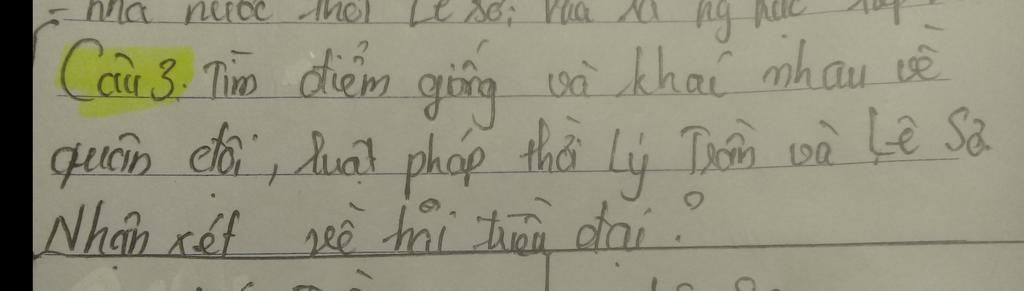 = nhà nước thời Lê sơ;
Câu 3. Tìm điểm giống và khác nhau về
quân đội, luật pháp thời Lý Trần và Lê Sơ.
Nhận xét về hai triều đại?